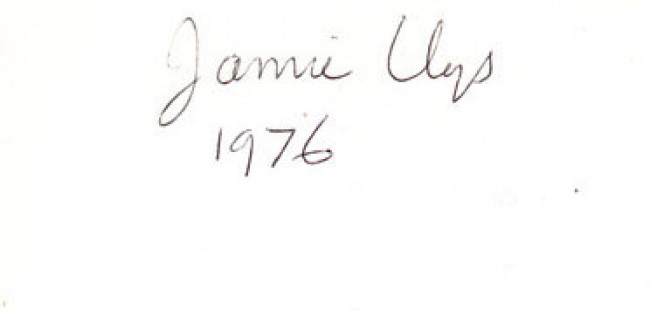 Jamie Uys
1976